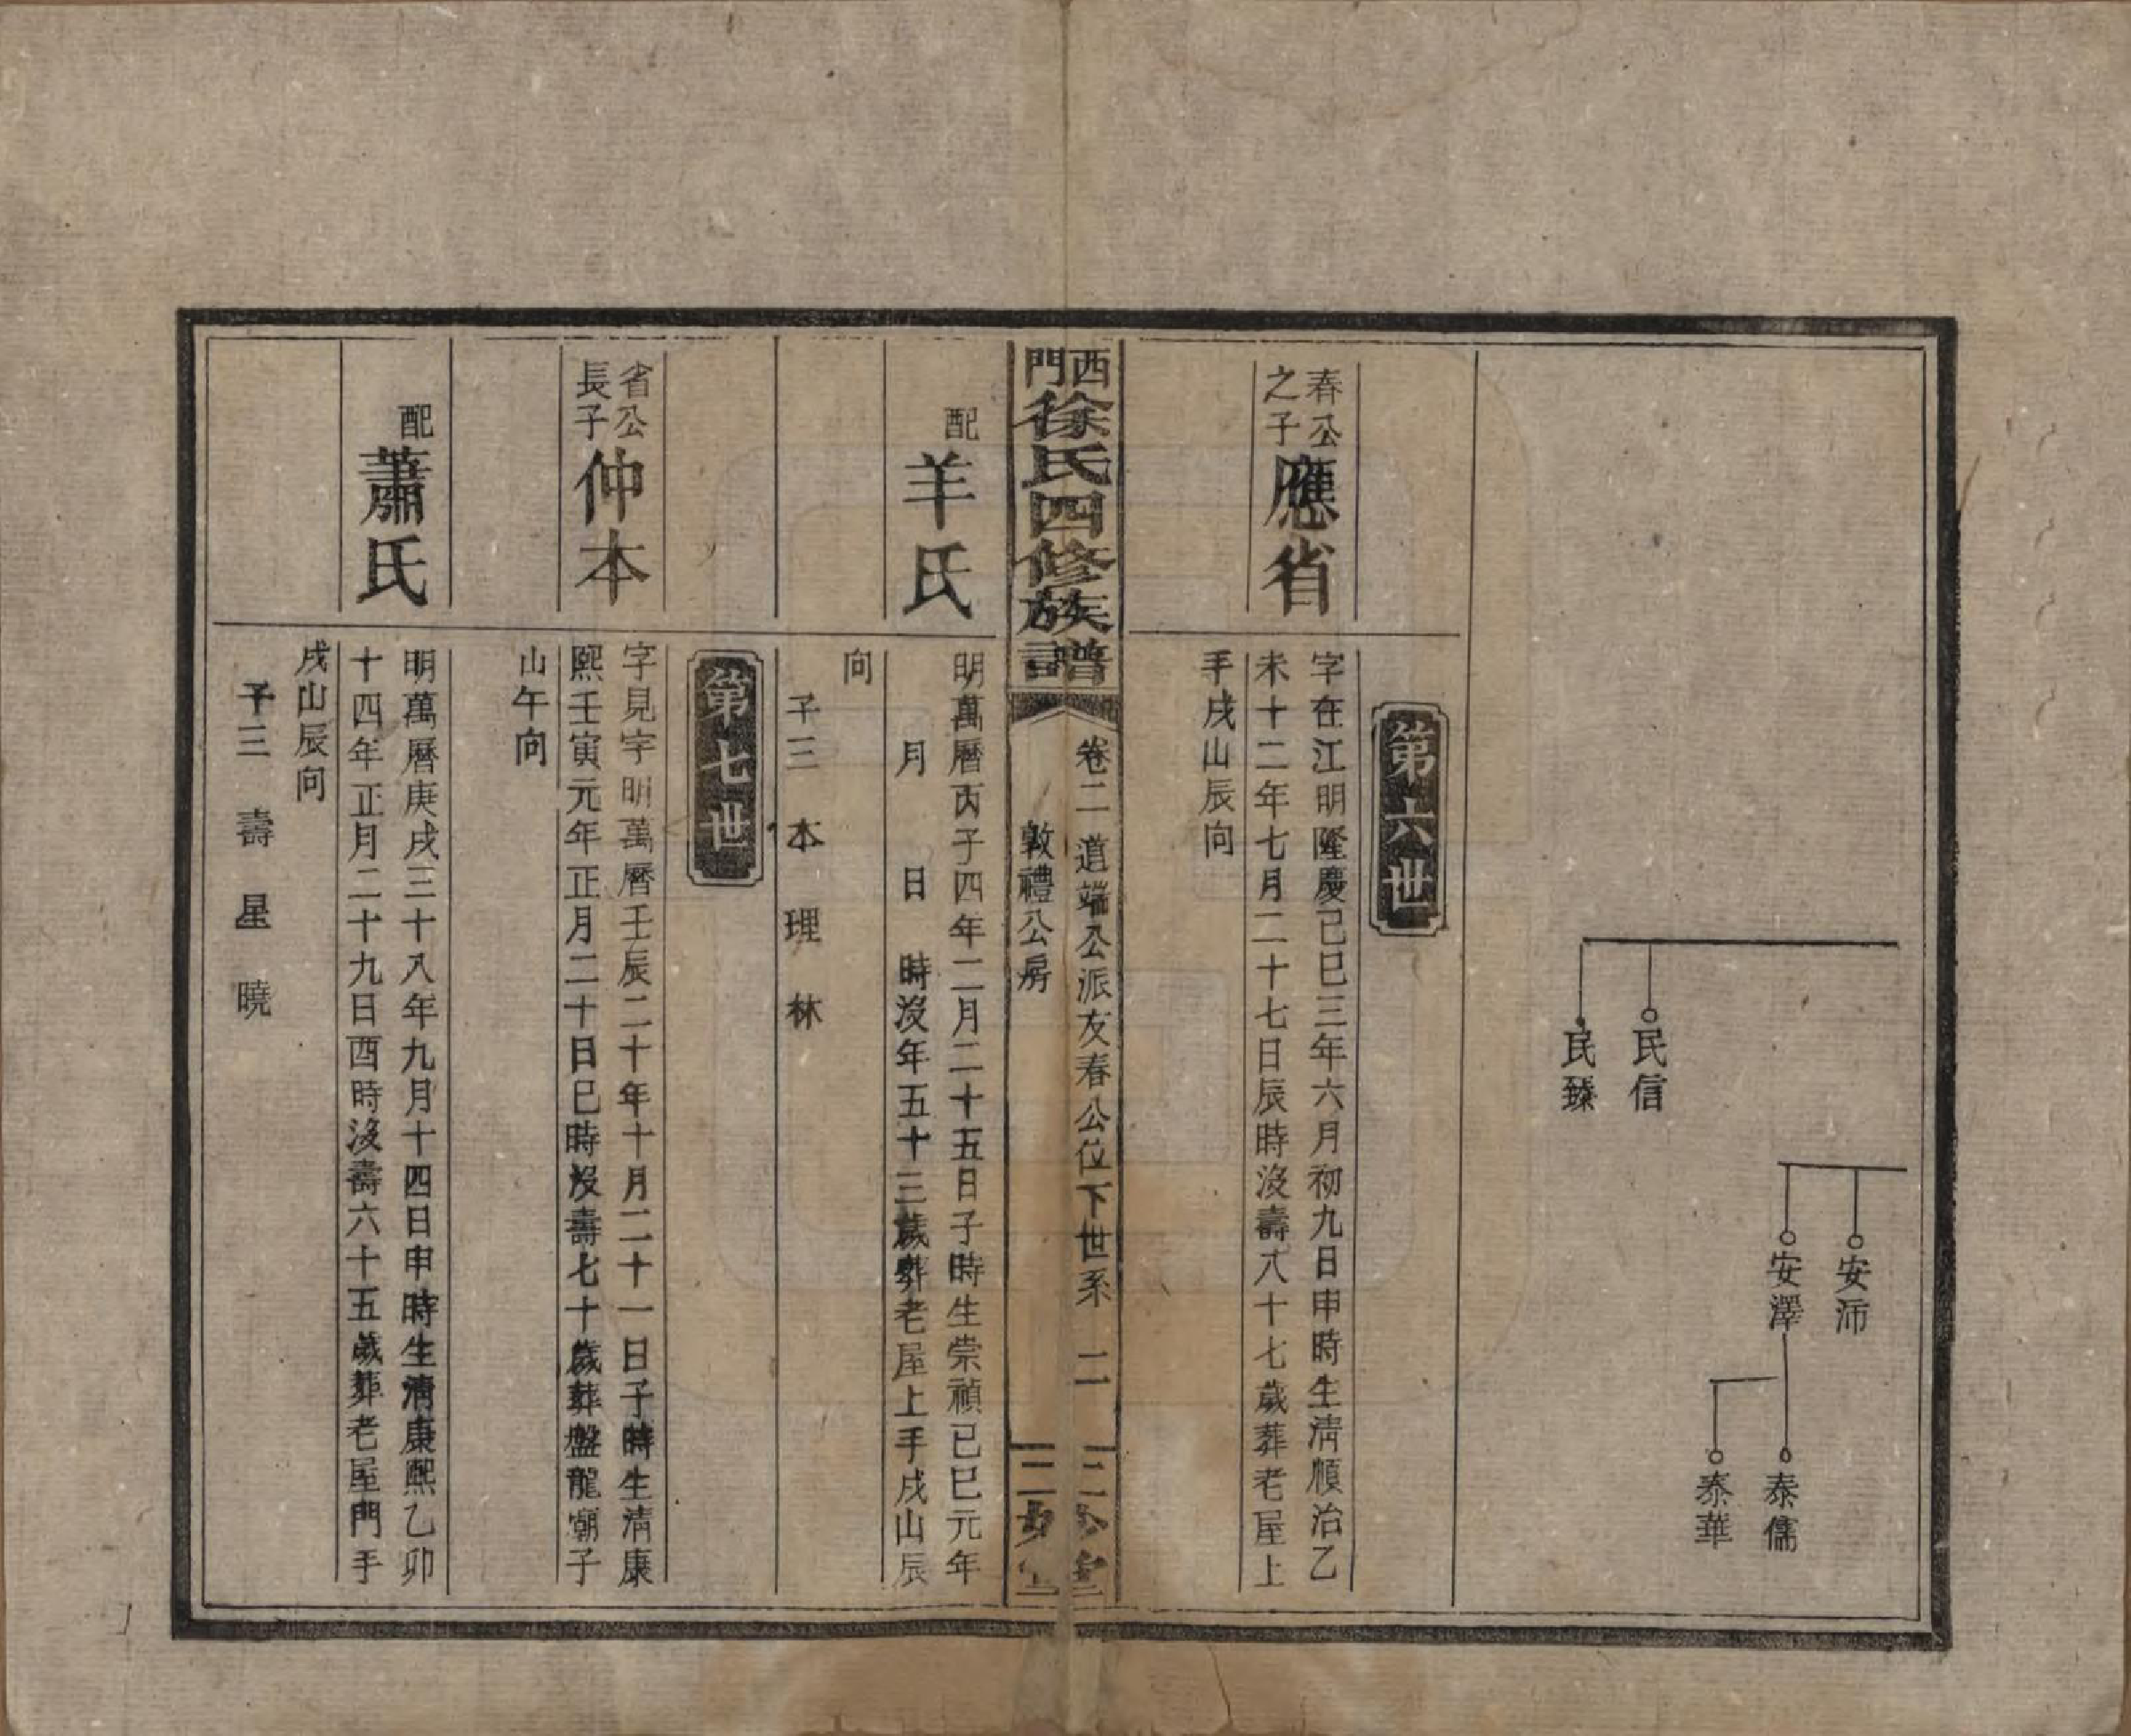 安沛
安澤
泰儒
泰華
民信
民臻
第六世
春公
之子
應省
字在江明隆慶己巳三年六月初九日申時生清順治乙
未十二年七月二十七日辰時沒壽八十七歲葬老屋上
手戌山辰向
西門徐氏四修族譜
卷二 道端公派友春公位下世系 二
敦禮公房
配羊氏
明萬曆丙子四年二月二十五日子時生崇禎己巳元年
月 日 時沒年五十三歲葬老屋上手戌山辰
向
子三 本 理 林
第七世
省公
長子
仲本
字見宇明萬曆壬辰二十年十月二十一日子時生清康
熙壬寅元年正月二十日巳時沒壽七十歲葬盤龍廟子
山午向
配蕭氏
明萬曆庚戌三十八年九月十四日申時生清康熙乙卯
十四年正月二十九日酉時沒壽六十五歲葬老屋門手
戌山辰向
子三 壽 星 曉